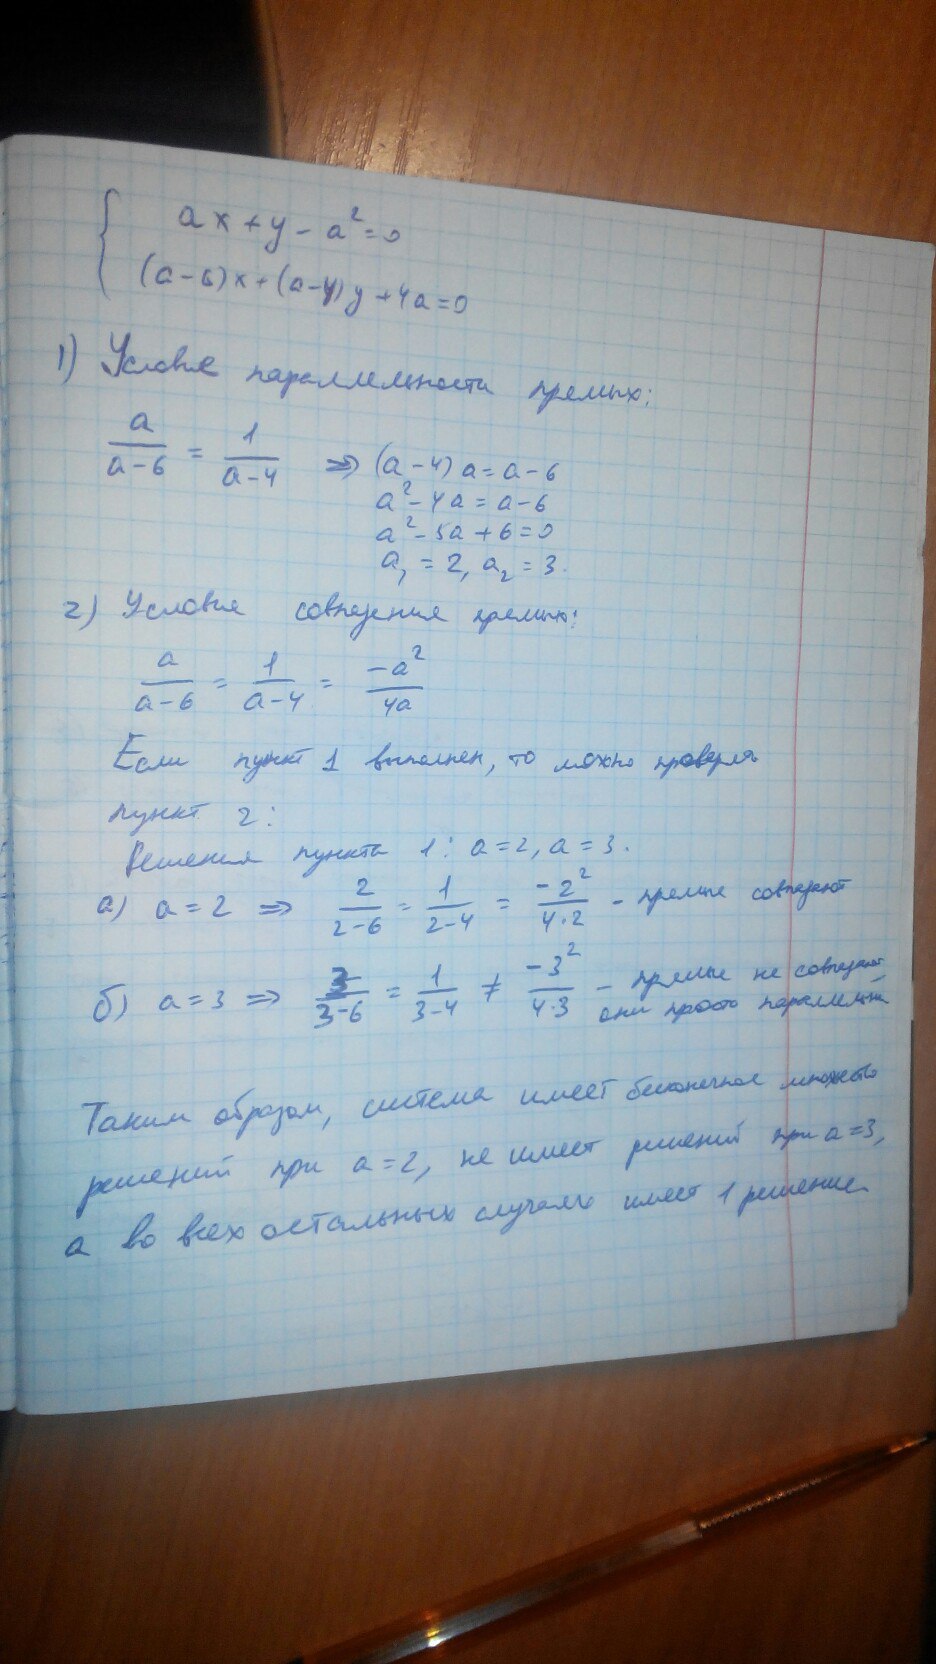 { ax + y - a² = 0
(a-6)x + (a-4)y + 4a = 0
1) Условие параллельности прямых:
a/(a-6) = 1/(a-4) => (a-4)a = a-6
a² - 4a = a-6
a² - 5a + 6 = 0
a₁ = 2, a₂ = 3.
2) Условие совпадения прямых:
a/(a-6) = 1/(a-4) = -a²/4a
Если пункт 1 выполнен, то можно проверять
пункт 2:
Решения пункта 1: a=2, a=3.
а) a=2 => 2/(2-6) = 1/(2-4) = -2²/(4·2) - прямые совпадают
б) a=3 => 3/(3-6) = 1/(3-4) ≠ -3²/(4·3) - прямые не совпадают
они просто параллельны
Таким образом, система имеет бесконечное множество
решений при a=2, не имеет решений при a=3,
а во всех остальных случаях имеет 1 решение